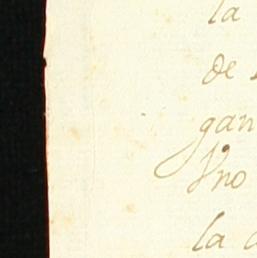 la
de
gan
Vno
la